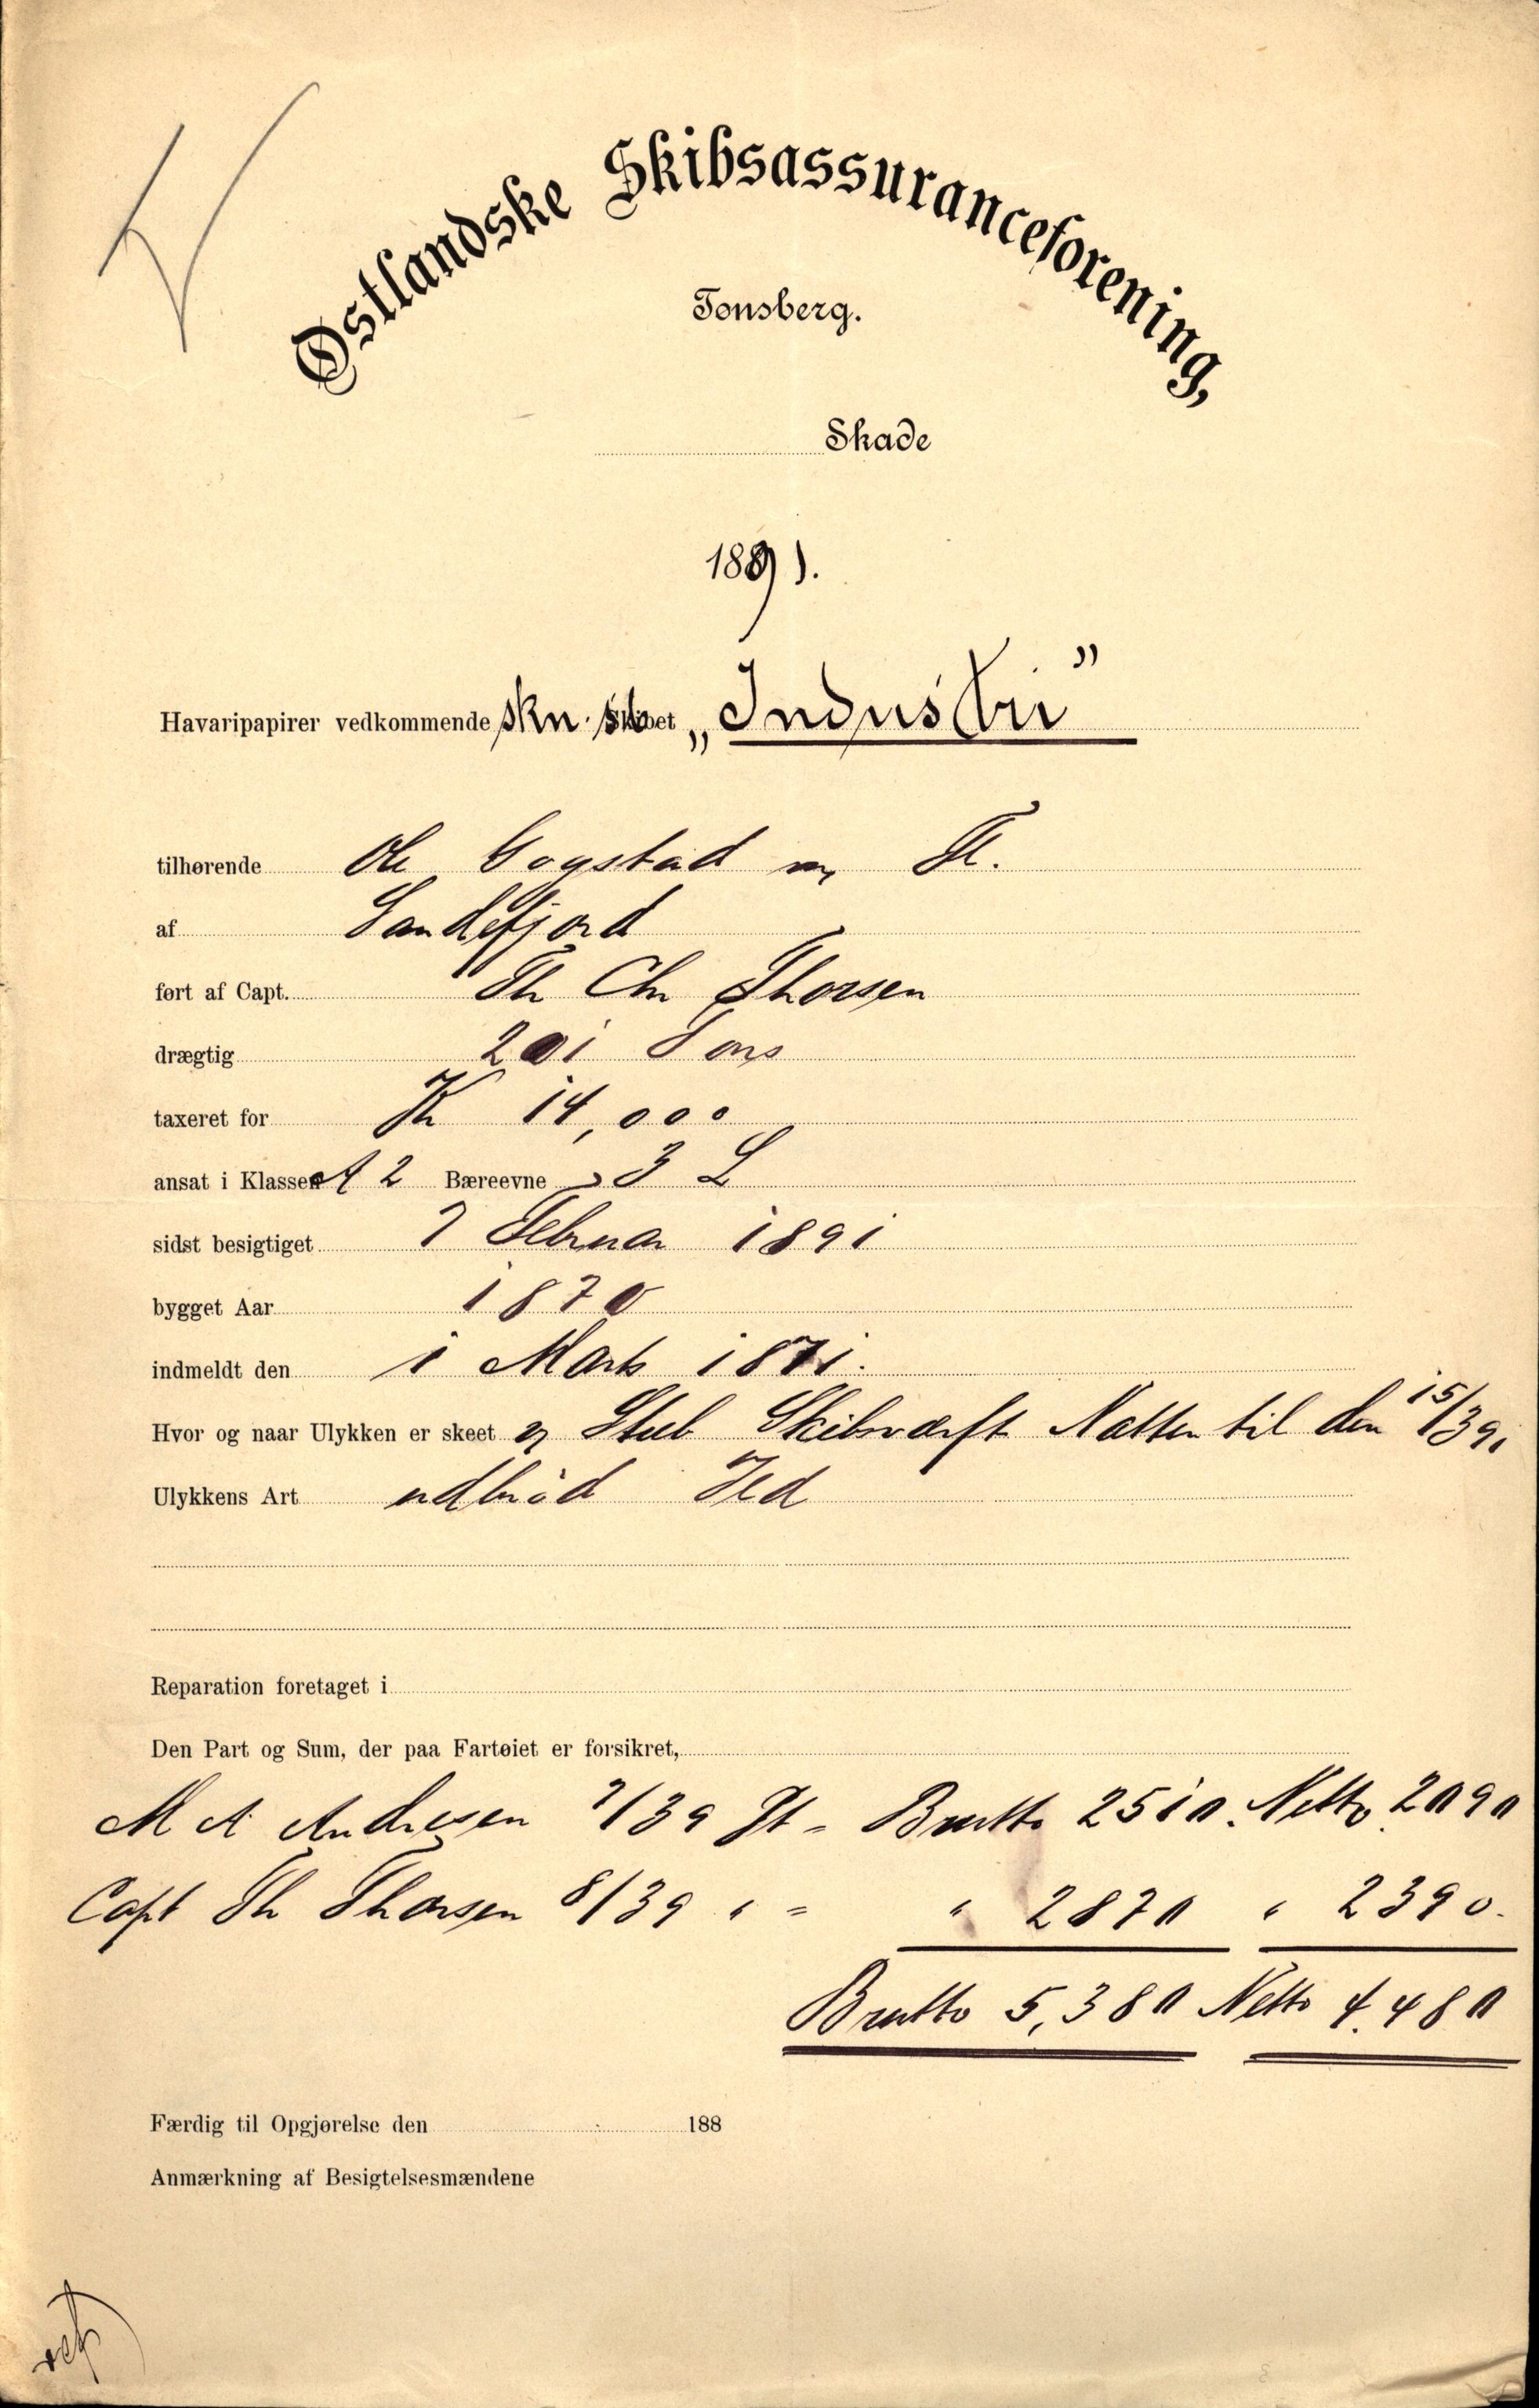 Østlandske Skibsassuranceforening,
Tønsberg.
Skade
1891.
Havaripapirer vedkommende skn. sk. Skibet „Industri”
tilhørende Ole Gogstad m Fl.
af Sandefjord
ført af Capt. Th Chr Thorsen
drægtig 201 Tons
taxeret for Kr 14,000
ansat i Klassen A 2 Bæreevne 3 L
sidst besigtiget 7 Februar 1891
bygget Aar 1870
indmeldt den 1 Marts 1871.
Hvor og naar Ulykken er skeet Stub Skibsværft Natten til den 15/3 91
Ulykkens Art udbröd Ild
Reparation foretaget i
Den Part og Sum, der paa Fartøiet er forsikret,
M A Andresen 7/39 Pt - Brutto 2510. Netto 2090
Capt Th Thorsen 8/39 " = " 2870 " 2390.
Brutto 5,380 Netto 4.480
Færdig til Opgjørelse den 188
Anmærkning af Besigtelsesmændene